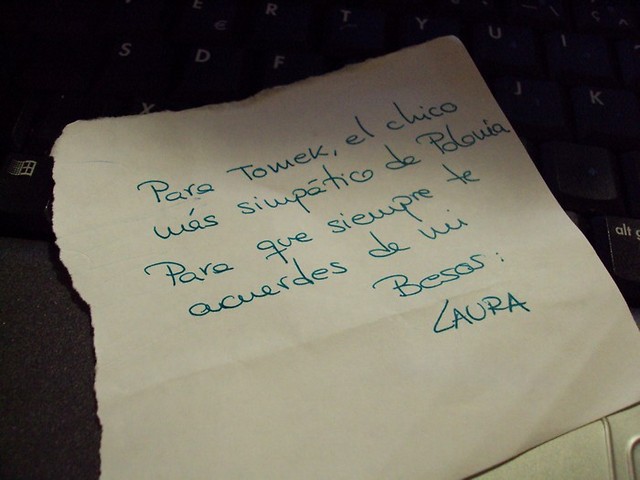 E R T Y U I
€
S D F J K
X
alt g
Para Tomek, el chico
más simpático de Polonia
Para que siempre te
acuerdes de mi
Besos:
LAURA